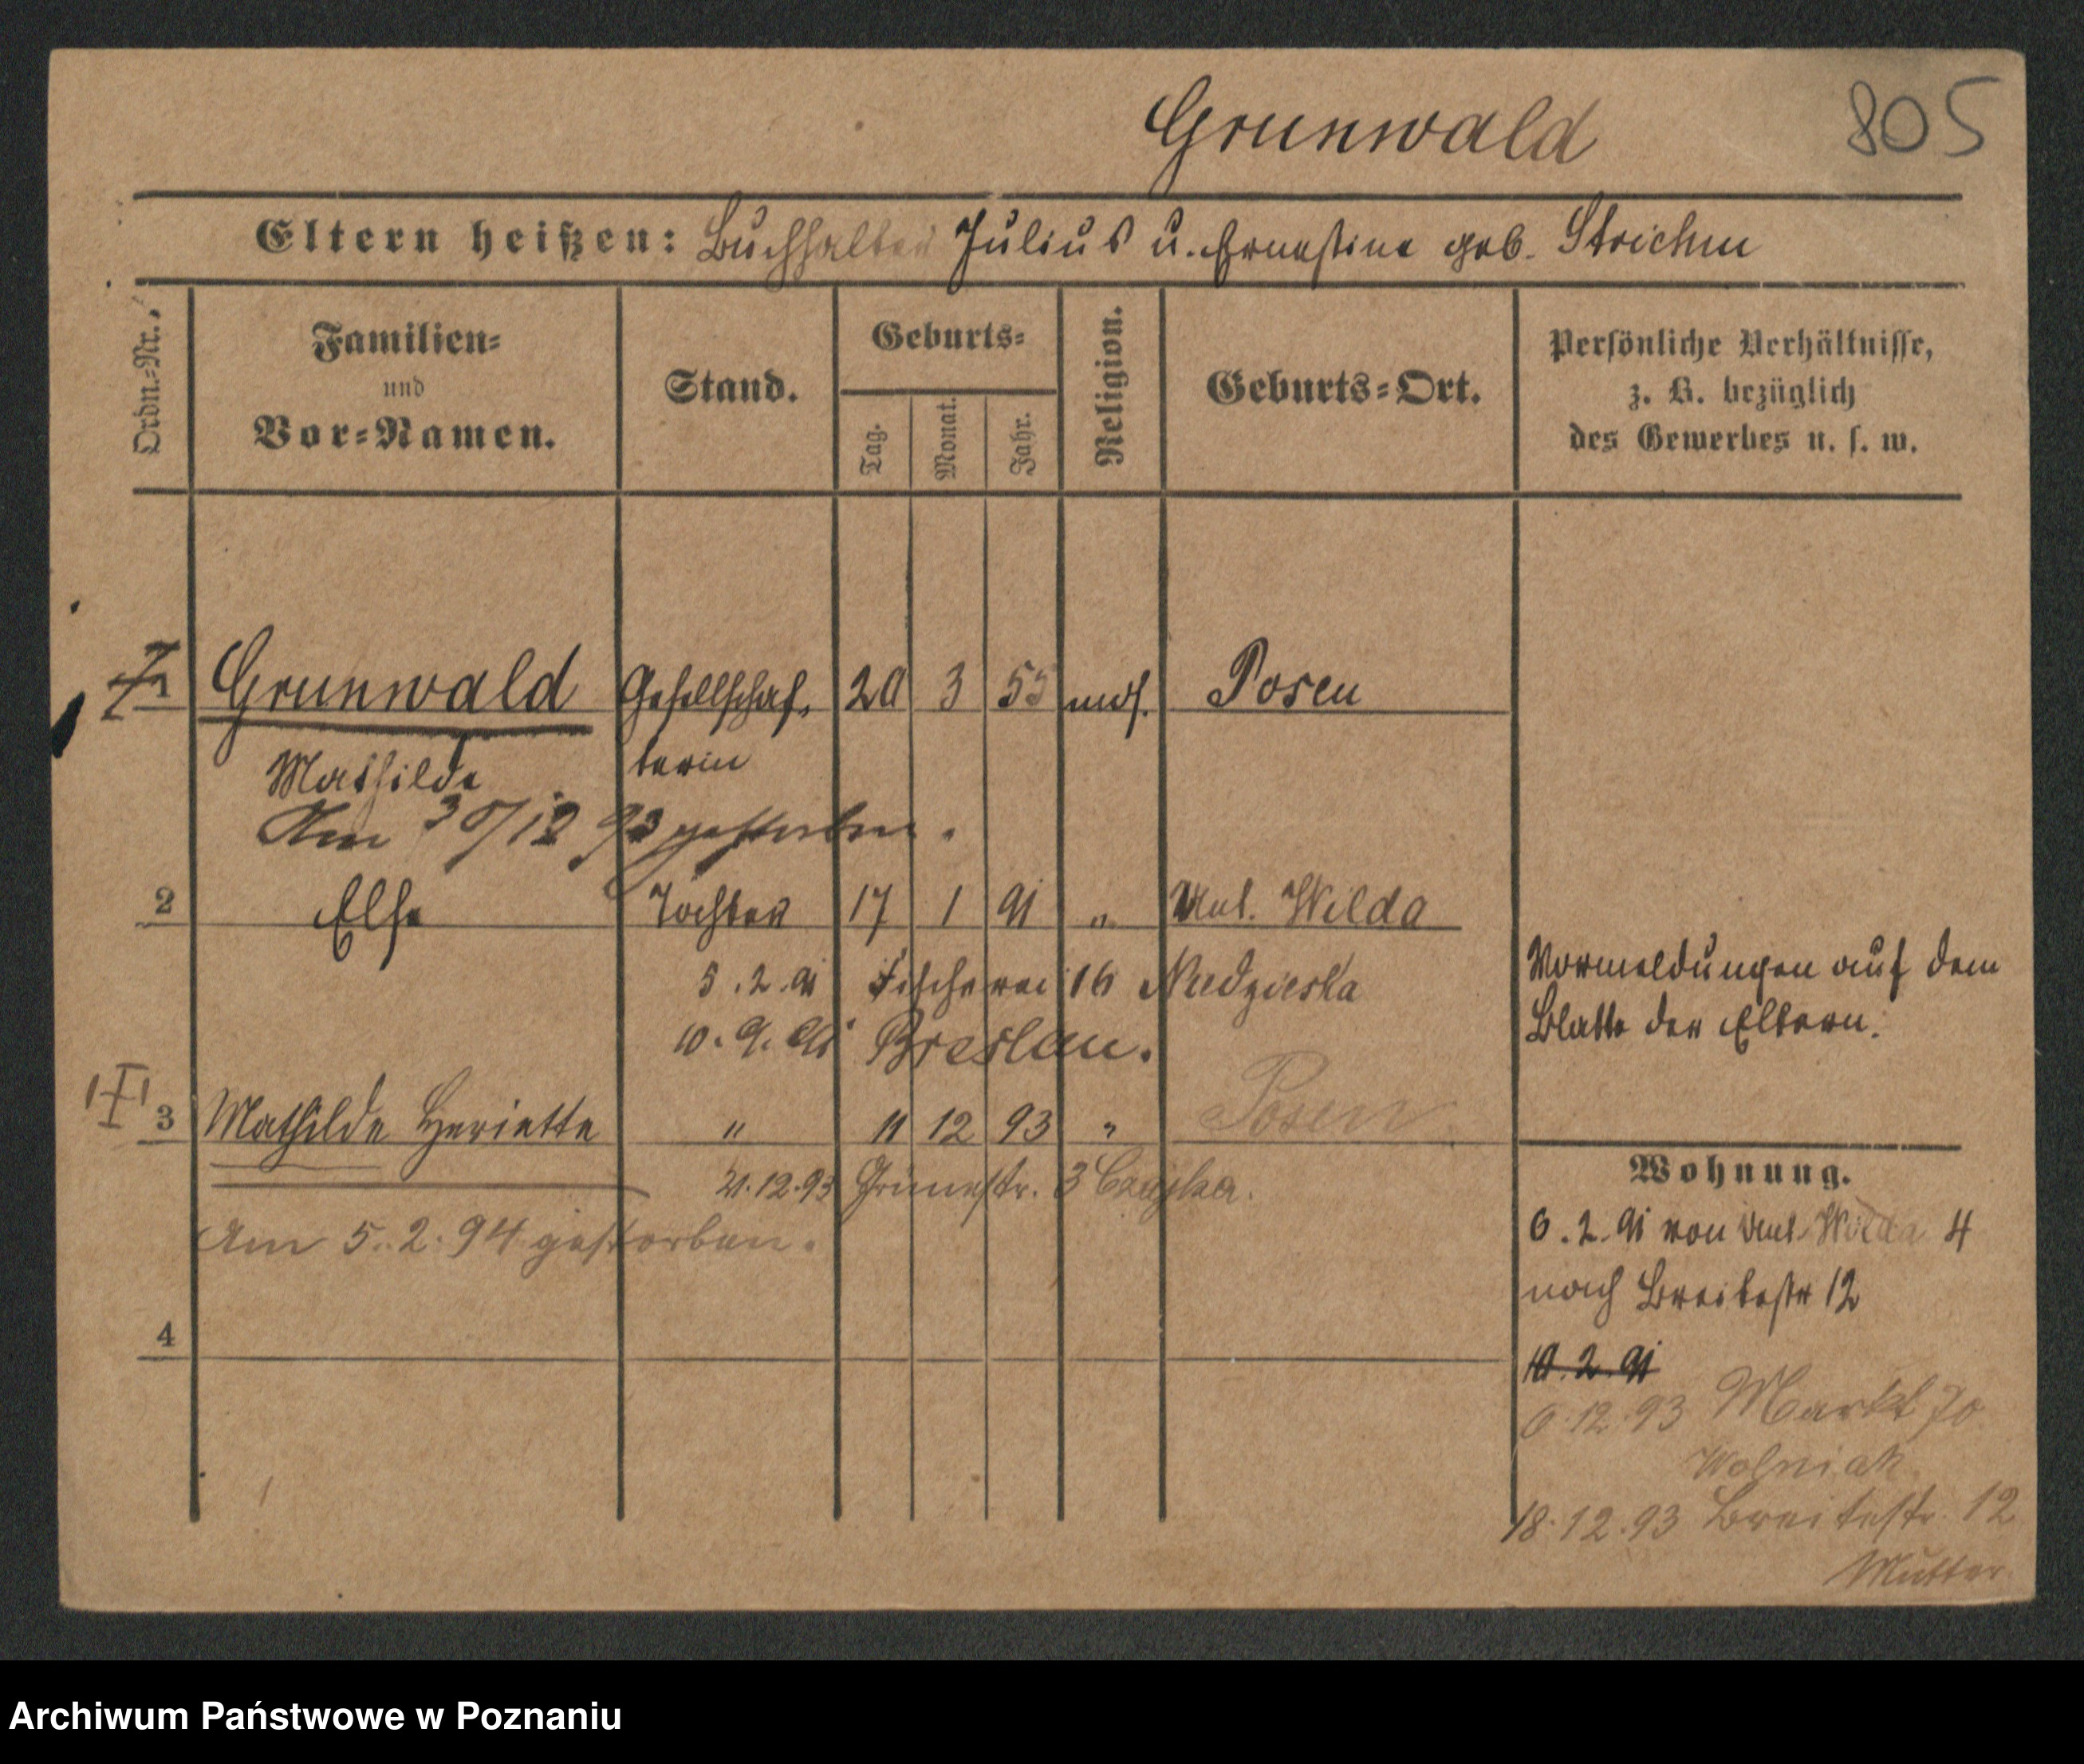 Grunwald 805
Eltern heißen: Buchhalter Julius u. Ernestine geb. Strichm
Ordn.-Nr.
Familien-
und
Vor-Namen.
Stand.
Geburts-
Tag.
Monat.
Jahr.
Religion.
Geburts-Ort.
Persönliche Verhältnisse,
z. B. bezüglich
des Gewerbes u. s. w.
1 Grunwald Gesellschaf- 20 3 55 mos. Posen
Mathilde terin
Am 30/12 93 gestorben.
2 Else Tochter 17 1 91 " Unt. Wilda
5.2.91 Fischerei 16
10.9.91 Breslau.
Vormeldungen auf dem
Blatte der Eltern.
3 Mathilde Heriette " 11 12 93 " Posen
21.12.93 Grünestr. 3
Am 5.2.94 gestorben.
4
Wohnung.
6.2.91 von Unt. Wilda 4
nach Breitestr 12
10.2.91
6.12.93 Markt 70
Wolniak
18.12.93 Breitestr. 12
Mutter
Archiwum Państwowe w Poznaniu